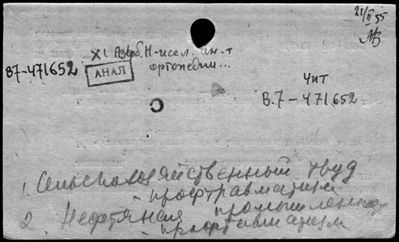 21/II 55
XI Азерб. Н-исслед. ин-т
ортопедии...
В7-471652
АНАЛ
Чит
В.7-471652
1. Сельскохозяйственный труд
- профтравматизм
2. Нефтяная промышленность
- профтравматизм